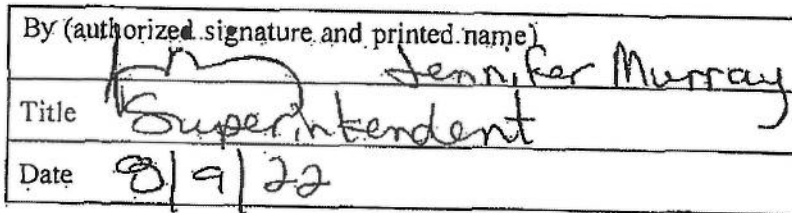 By (authorized signature and printed name)
Jennifer Murray
Title Superintendent
Date 8/9/22